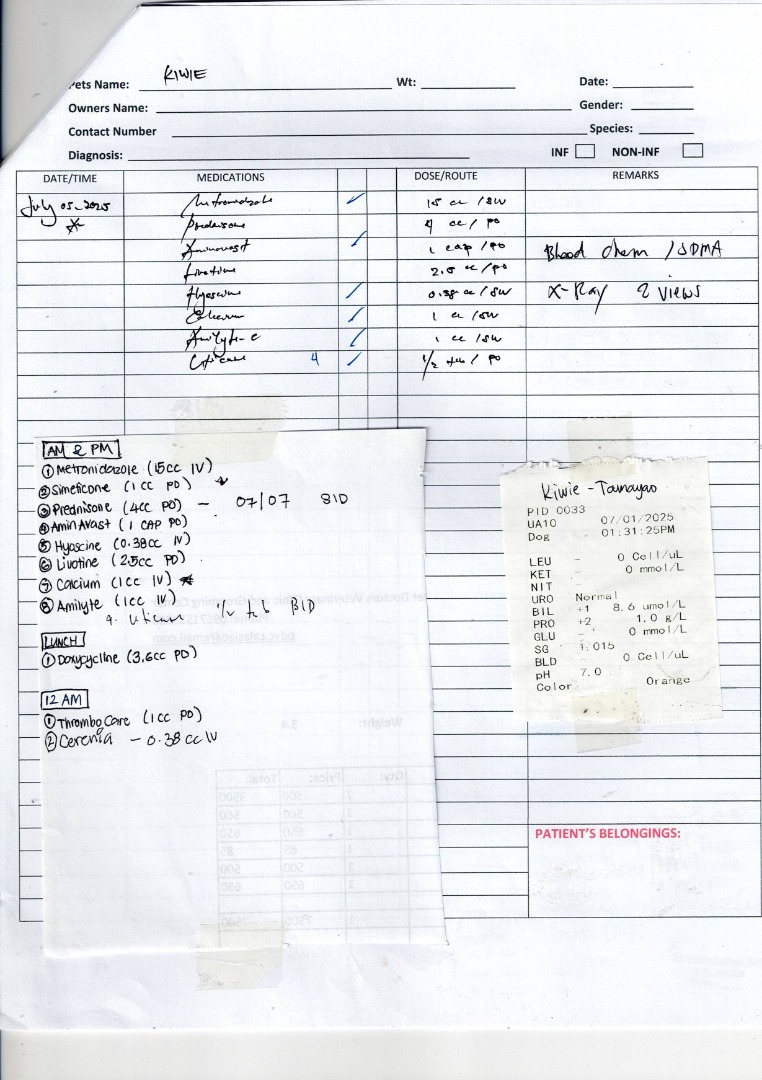 KIWIE
Pets Name: Wt: Date:
Owners Name: Gender:
Contact Number Species:
Diagnosis: INF NON-INF
DATE/TIME MEDICATIONS DOSE/ROUTE REMARKS
July 05-2025 Metronidazole 15 cc /
Prednisone 4 cc / po
Aminavast 1 cap / po Blood chem / SDMA
2.5 cc / po
Hyoscine 0.38 cc / X-Ray 2 views
1 cc /
Amilyte-c 1 cc /
4 1/2 tab / po
AM & PM
① Metronidazole (15cc IV)
② Simeticone (1 CC PO)
③ Prednisone (4cc PO) – 07/07 SID
④ Amin Avast (1 CAP PO)
⑤ Hyoscine (0.38cc IV)
⑥ Livotine (2.5cc PO)
⑦ Calcium (1cc IV)
⑧ Amilyte (1cc IV)
9. 1/2 tab BID
LUNCH
① Doxycycline (3.6cc PO)
12 AM
① Thrombo Care (1cc PO)
② Cerenia – 0.38 cc IV
Kiwie - Tamayao
PID 0033
UA10 07/01/2025
Dog 01:31:25PM
LEU - 0 Cell/uL
KET - 0 mmol/L
NIT -
URO Normal
BIL +1 8.6 umol/L
PRO +2 1.0 g/L
GLU - 0 mmol/L
SG 1.015
BLD - 0 Cell/uL
pH 7.0
Color Orange
PATIENT'S BELONGINGS: